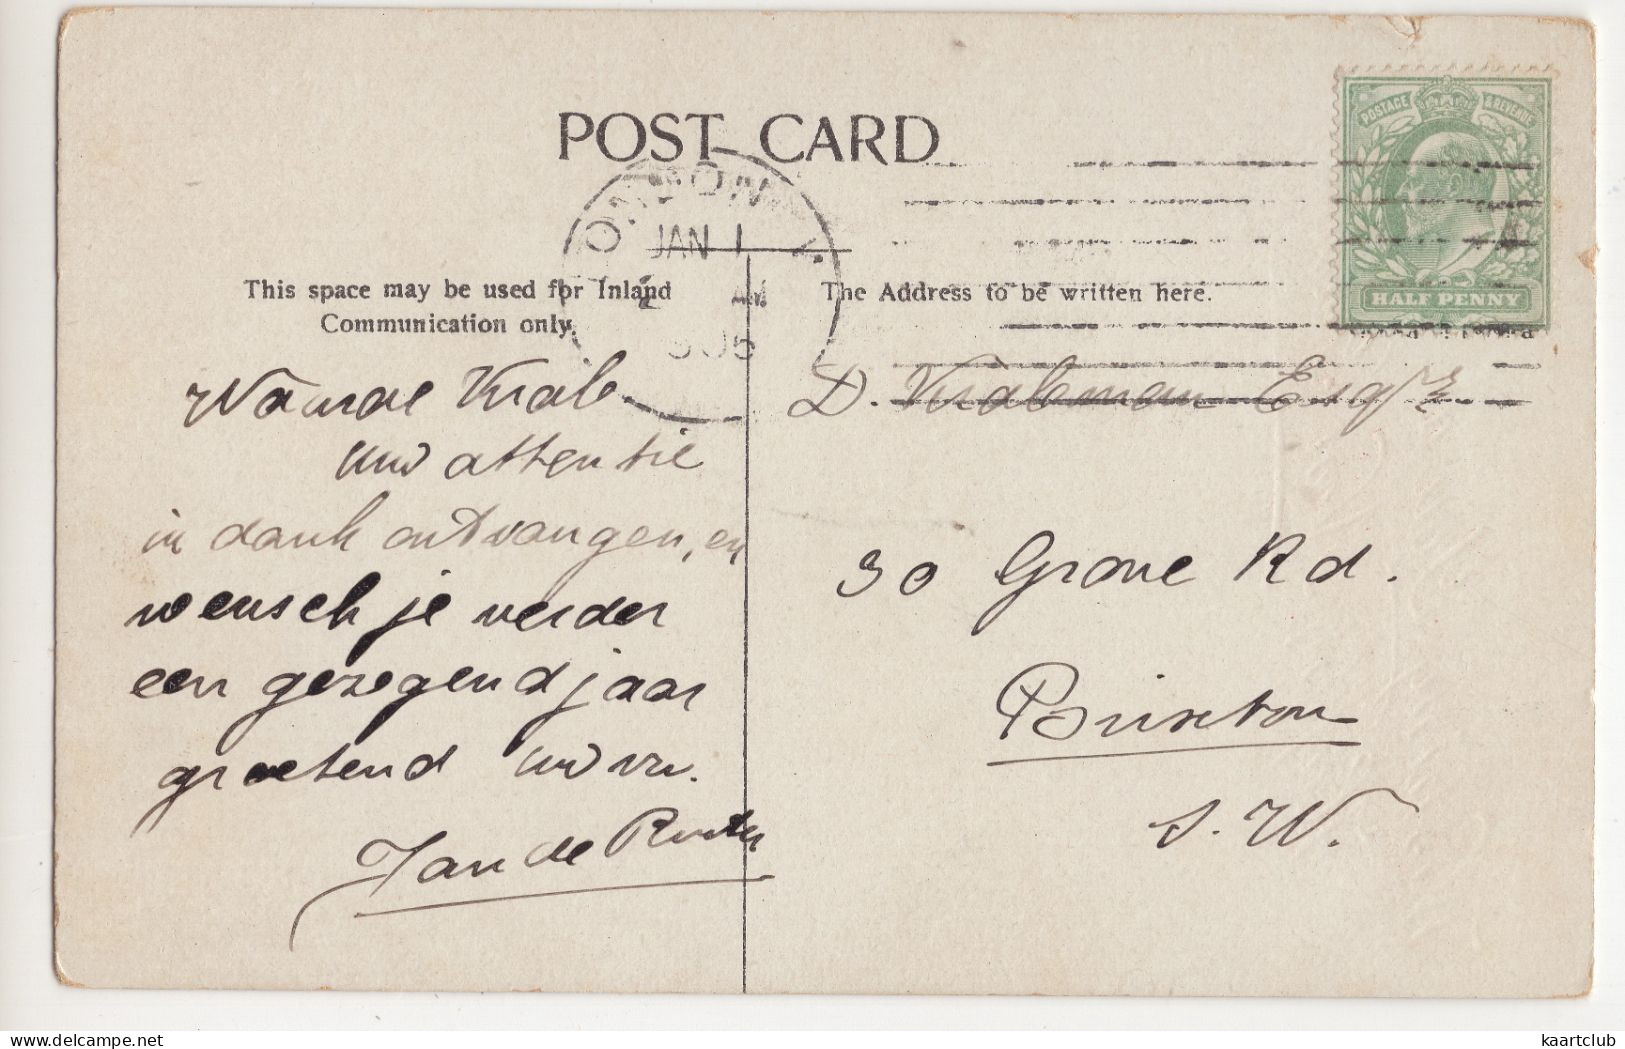 POST CARD
LONDON
JAN 1
AM
This space may be used for Inland
Communication only.
The Address to be written here.
POSTAGE & REVENUE
HALF PENNY
Waarde Krab
uw attentie
in dank ontvangen, en
wensch je verder
een gezegend jaar
groetend uw vr.
Jan de
D. Krabman Esq
30 Grove Rd.
Brixton
S. W.
kaartclub